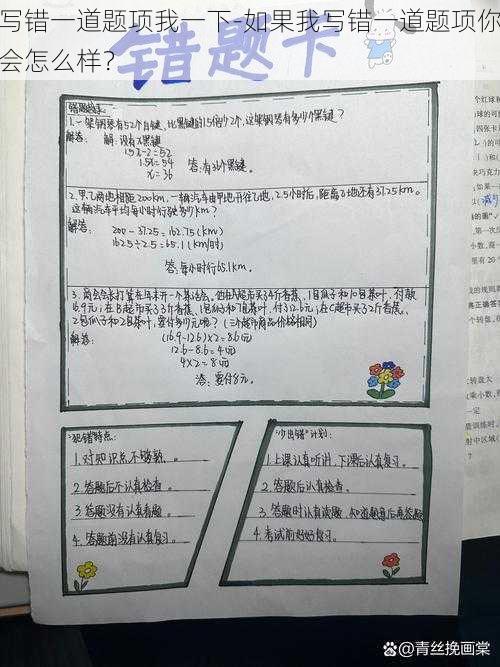 写错一道题项我一下-如果我写错一道题项你
会怎么样？
错题卡
错题题录：
1.一架钢琴有52个白键，比黑键的1.5倍少2个，这架钢琴有多少个黑键？
解答： 解：设有x黑键
1.5x-2=52
1.5x=54
x=36
答：有36个黑键。
2.甲乙两地相距200km，一辆汽车由甲地开往乙地，2.5小时后，距离乙地还有37.25km。
这辆汽车平均每小时行驶多少km？
解答： 200-37.25=162.75(km)
162.5÷2.5=65.1(km/时)
答：每小时行65.1km。
16.9元；在B超市买3斤香蕉、1包瓜子和1包茶叶，付12.6元；在C超市买3斤香蕉、
2包瓜子和2包茶叶，要付多少元呢？（三个超市商品价格相同）
解答： (16.9-12.6)×2=8.6元
12.6-8.6=4元
4×2=8元
答：要付8元。
犯错特点：
1.对知识点不够熟。
2.答题后不认真检查。
3.答题没有认真看题。
4.答题前没有认真复习。
“少出错”计划：
1.上课认真听讲，下课后认真复习。
2.答题后认真检查。
3.答题时认真读题，知道题意后再答题
4.考试前好好复习。
百家号/青丝挽画棠